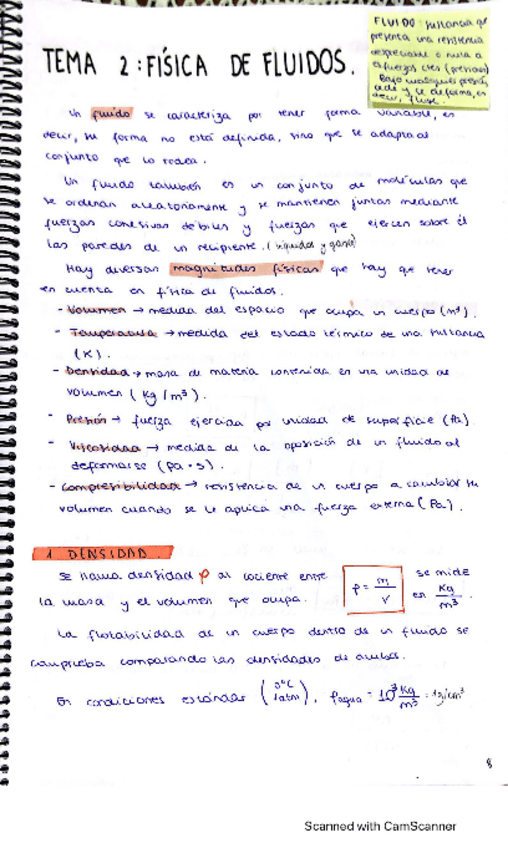 FLUIDO: sustancia q
presenta una resistencia
despreciable o nula a
esfuerzos ctes (presiones)
Bajo cualquier presión,
cede y se deforma, es
decir, fluye.
TEMA 2: FÍSICA DE FLUIDOS.
Un fluido se caracteriza por tener forma variable, es
decir, su forma no está definida, sino que se adapta al
conjunto que lo rodea.
Un fluido también es un conjunto de moléculas que
se ordenan aleatoriamente y se mantienen juntas mediante
fuerzas cohesivas débiles y fuerzas que ejercen sobre él
las paredes de un recipiente. (líquidos y gases)
Hay diversas magnitudes físicas que hay que tener
en cuenta en física de fluidos.
- Volumen → medida del espacio que ocupa un cuerpo (m³).
- Temperatura → medida del estado térmico de una sustancia
(K).
- Densidad → masa de materia contenida en una unidad de
volumen (Kg/m³).
- Presión → fuerza ejercida por unidad de superficie (Pa)
- Viscosidad → medida de la oposición de un fluido al
deformarse (Pa · s).
- Compresibilidad → resistencia de un cuerpo a cambiar su
volumen cuando se le aplica una fuerza externa (Pa).
1 DENSIDAD
Se llama densidad ρ al cociente entre ρ = m/V se mide
la masa y el volumen que ocupa. en Kg/m³.
La flotabilidad de un cuerpo dentro de un fluido se
comprueba comparando las densidades de ambos.
En condiciones estándar (0°C 1atm), ρagua = 10³ Kg/m³ = 1g/cm³
8
Scanned with CamScanner